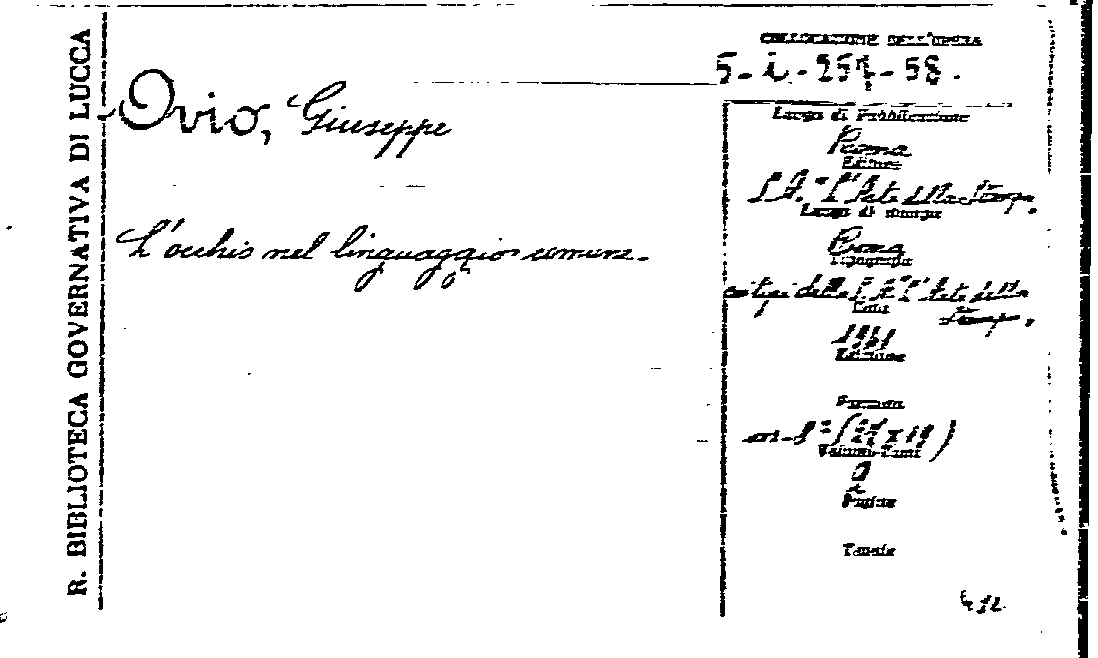 R. BIBLIOTECA GOVERNATIVA DI LUCCA
Ovio, Giuseppe
L'occhio nel linguaggio comune.
COLLOCAZIONE DELL'OPERA
5-i-257-58.
Luogo di Pubblicazione
Roma
Editore
S.A. "L'Arte della Stampa.
Luogo di stampa
Roma
Tipografia
coi tipi della S.A. "L'Arte della
Stampa.
Data
Edizione
Formato
in-8° (
Volumi-Tomi
2
Pagine
Tavole